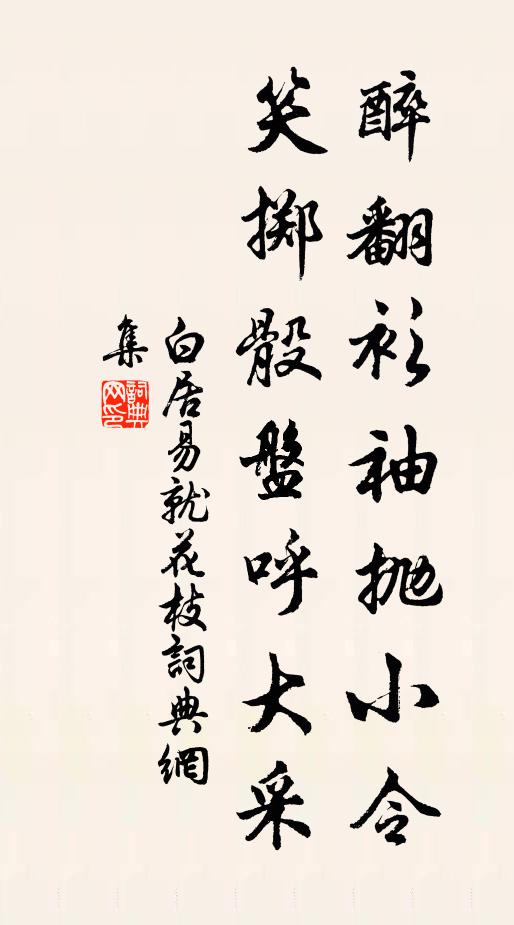 醉翻衫袖抛小令
笑掷骰盤呼大采
白居易就花枝詞典網
集
詞典網印